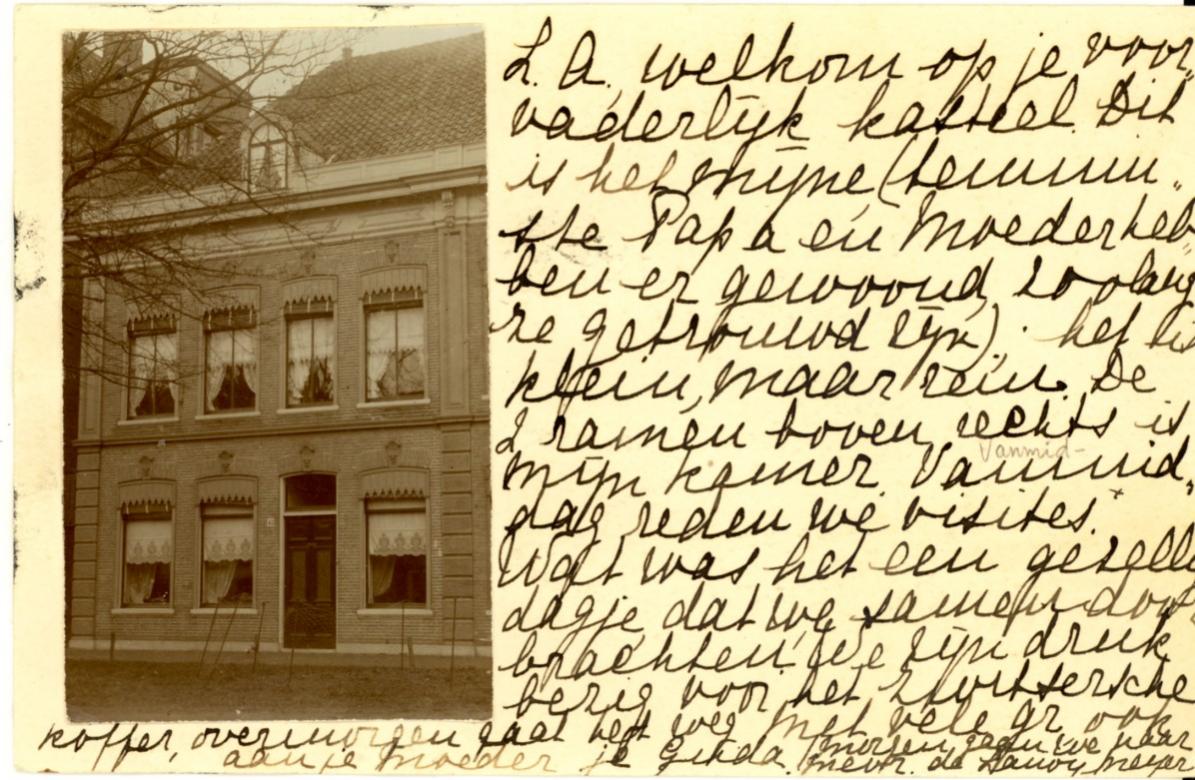 L. A. welkom op je voor„
vaderlijk kasteel. Dit
is het mijne (tenmin„
ste Papa en Moeder heb„
ben er gewoond, zoolang
ze getrouwd zijn). het is
klein, maar rein. De
2 ramen boven rechts is
Vanmid-
mijn kamer. Vanmid„
dag reden we visites.
Wat was het een gezellig
dagje dat we samen door„
brachten, We zijn druk
bezig voor het Zwitsersche
koffer, overmorgen gaat het weg Met vele gr. ook
aan je Moeder je (morgen gaan we naar
mevr. de